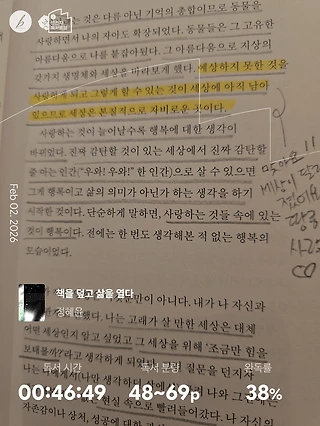 것은 다름 아닌 기억의 총합이므로 동물을
사랑하면서 나의 자아도 확장되었다. 동물들은 그 고유한
아름다움으로 나를 붙잡아뒀다. 그 아름다움으로 지상의
갖가지 생명체와 세상을 바라보게 했다. 예상하지 못한 것을
사랑하게 되고 그렇게 할 수 있는 것이 세상에 아직 남아
있으므로 세상은 본질적으로 자비로운 곳이다.
사랑하는 것이 늘어날수록 행복에 대한 생각이
바뀌었다. 진짜 감탄할 것이 있는 세상에서 진짜 감탄할
줄 아는 인간("우와! 우와!" 한 인간)으로 살 수 있으면
그게 행복이고 삶의 의미가 아닌가 하는 생각을 하기
시작한 것이다. 단순하게 말하면, 사랑하는 것들 속에 있는
것이 행복이다. 전에는 한 번도 생각해본 적 없는 행복의
모습이었다.
맞아요!!
세상이
Feb 02, 2026
책을 덮고 삶을 열다
정혜윤
뿐만이 아니다. 내가 나 자신과
했다. 나는 고래가 살 만한 세상은 대체
어떤 세상인지 알고 싶었고 그 세상을 위해 '조금만 힘을
보태볼까?'라고 생각하게 되었다.
질문을 던지자
독서 시간
독서 분량
완독률
00:46:49
48~69p
38%
현실 속으로 빨려들어갔다. 나 자신의
자존감이나 상처, 성공에 대한